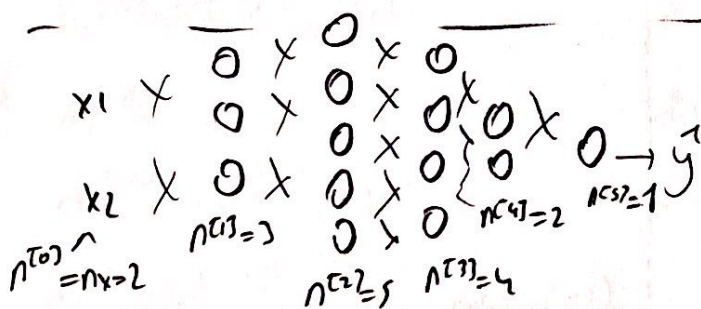 x1
x2
n^[0] = nx=2
n^[1]=3
n^[2]=5
n^[3]=4
n^[4]=2
n^[5]=1
ŷ